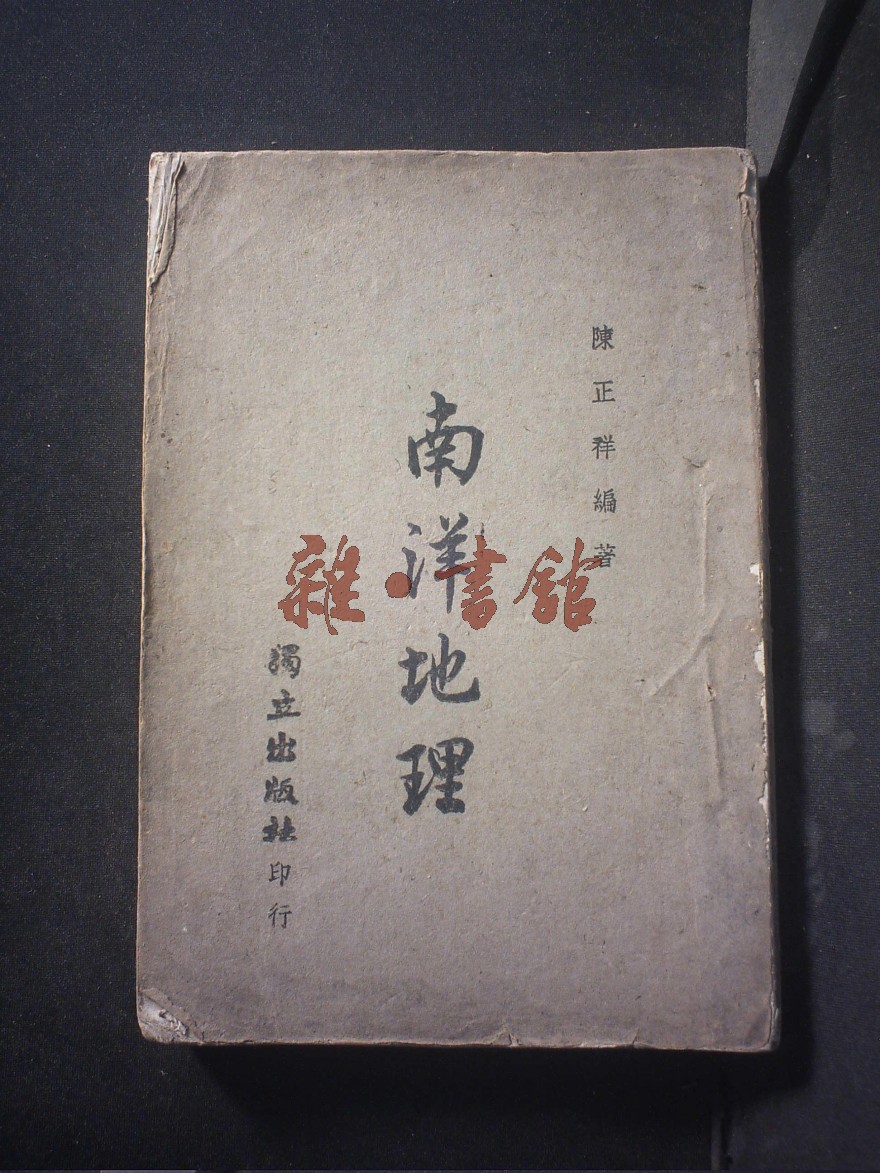 陳正祥編著
南洋地理
獨立出版社印行
雜·書館